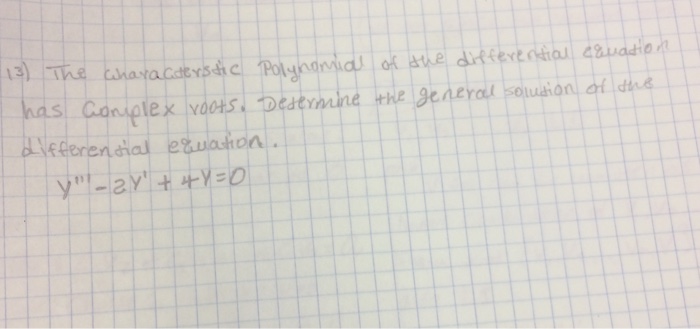 13) The characterstic Polynomial of the differential equation
has Complex roots. Determine the general solution of the
differential equation.
y''' - 2y' + 4y = 0